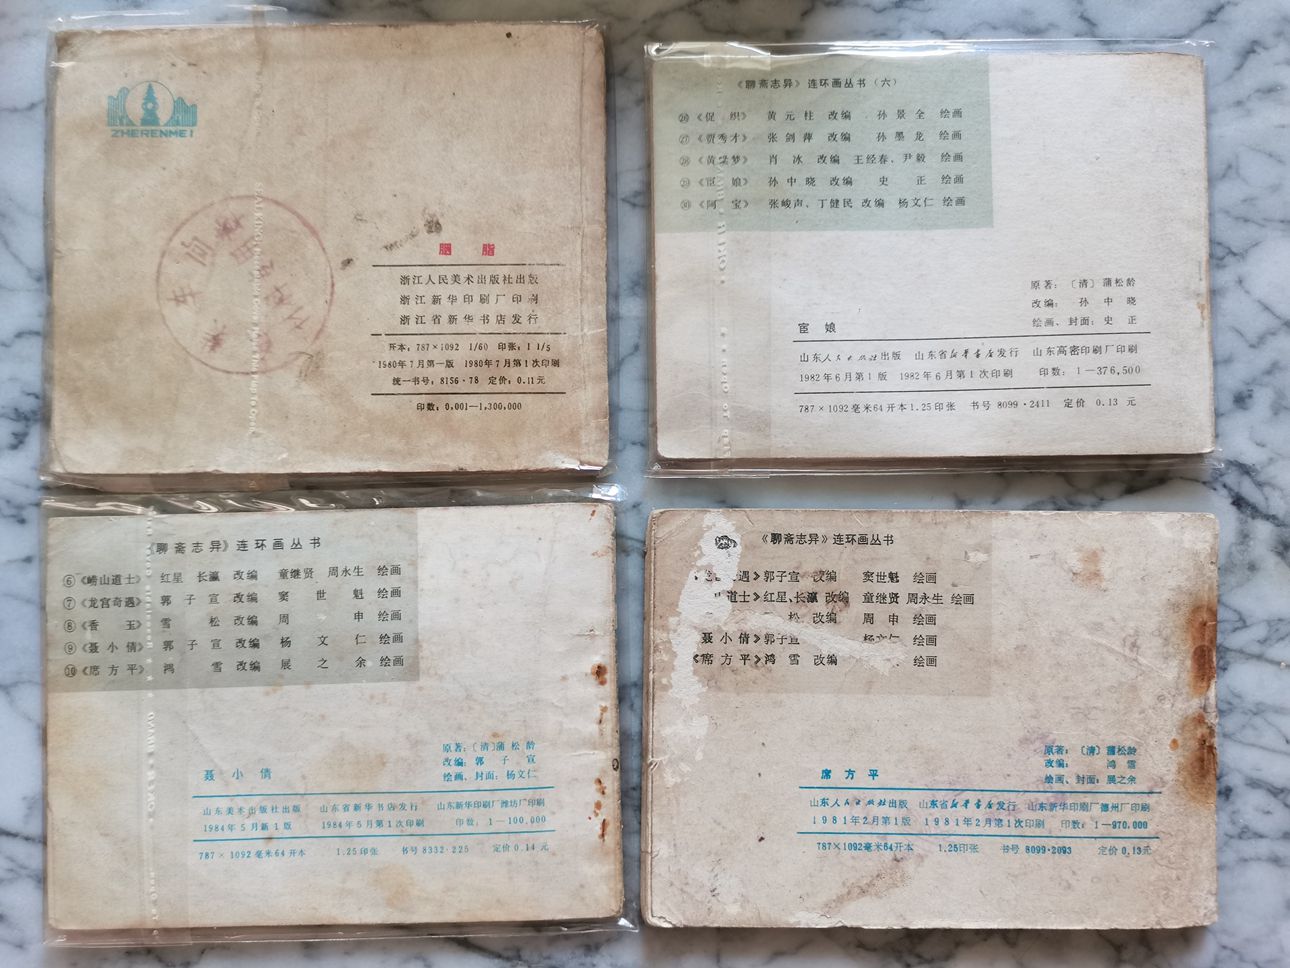 ZHERENMEI
胭 脂
浙江人民美术出版社出版
浙江新华印刷厂印刷
浙江省新华书店发行
开本：787×1092 1/60 印张：1 1/5
1980年7月第一版 1980年7月第1次印刷
统一书号：8156·78 定价：0.11元
印数：0,001—1,300,000
《聊斋志异》连环画丛书（六）
㉖《促 织》 黄元柱 改编 孙景全 绘画
㉗《贾秀才》 张剑萍 改编 孙墨龙 绘画
㉘《黄粱梦》 肖 冰 改编 王经春、尹毅 绘画
㉙《宦 娘》 孙中晓 改编 史 正 绘画
㉚《阿 宝》 张峻声、丁健民 改编 杨文仁 绘画
原著：〔清〕蒲松龄
改编： 孙 中 晓
绘画、封面：史 正
宦 娘
山东人民出版社出版 山东省新华书店发行 山东高密印刷厂印刷
1982年6月第1版 1982年6月第1次印刷 印数：1—376,500
787×1092毫米64开本1.25印张 书号 8099·2411 定价 0.13 元
《聊斋志异》连环画丛书
⑥《崂山道士》 红星 长瀛 改编 童继贤 周永生 绘画
⑦《龙宫奇遇》 郭子宣 改编 窦世魁 绘画
⑧《香 玉》 雪 松 改编 周 申 绘画
⑨《聂小倩》 郭子宣 改编 杨文仁 绘画
⑩《席方平》 鸿 雪 改编 展之余 绘画
原著：〔清〕蒲松龄
改编：郭 子 宣
绘画、封面：杨文仁
聂 小 倩
山东美术出版社出版 山东省新华书店发行 山东新华印刷厂潍坊厂印刷
1984年5月新1版 1984年5月第1次印刷 印数：1—100,000
787×1092毫米64开本 1.25印张 书号8332·225 定价0.14元
《聊斋志异》连环画丛书
遇》郭子宣 改编 窦世魁 绘画
道士》红星、长瀛 改编 童继贤 周永生 绘画
松 改编 周 申 绘画
聂小倩》郭子宣 杨文仁 绘画
《席方平》鸿 雪 改编 绘画
原著：〔清〕蒲松龄
改编： 鸿 雪
绘画、封面：展之余
席 方 平
山东人民出版社出版 山东省新华书店发行 山东新华印刷厂德州厂印刷
1981年2月第1版 1981年2月第1次印刷 印数：1—970,000
787×1092毫米64开本 1.25印张 书号 8099·2093 定价 0.13元